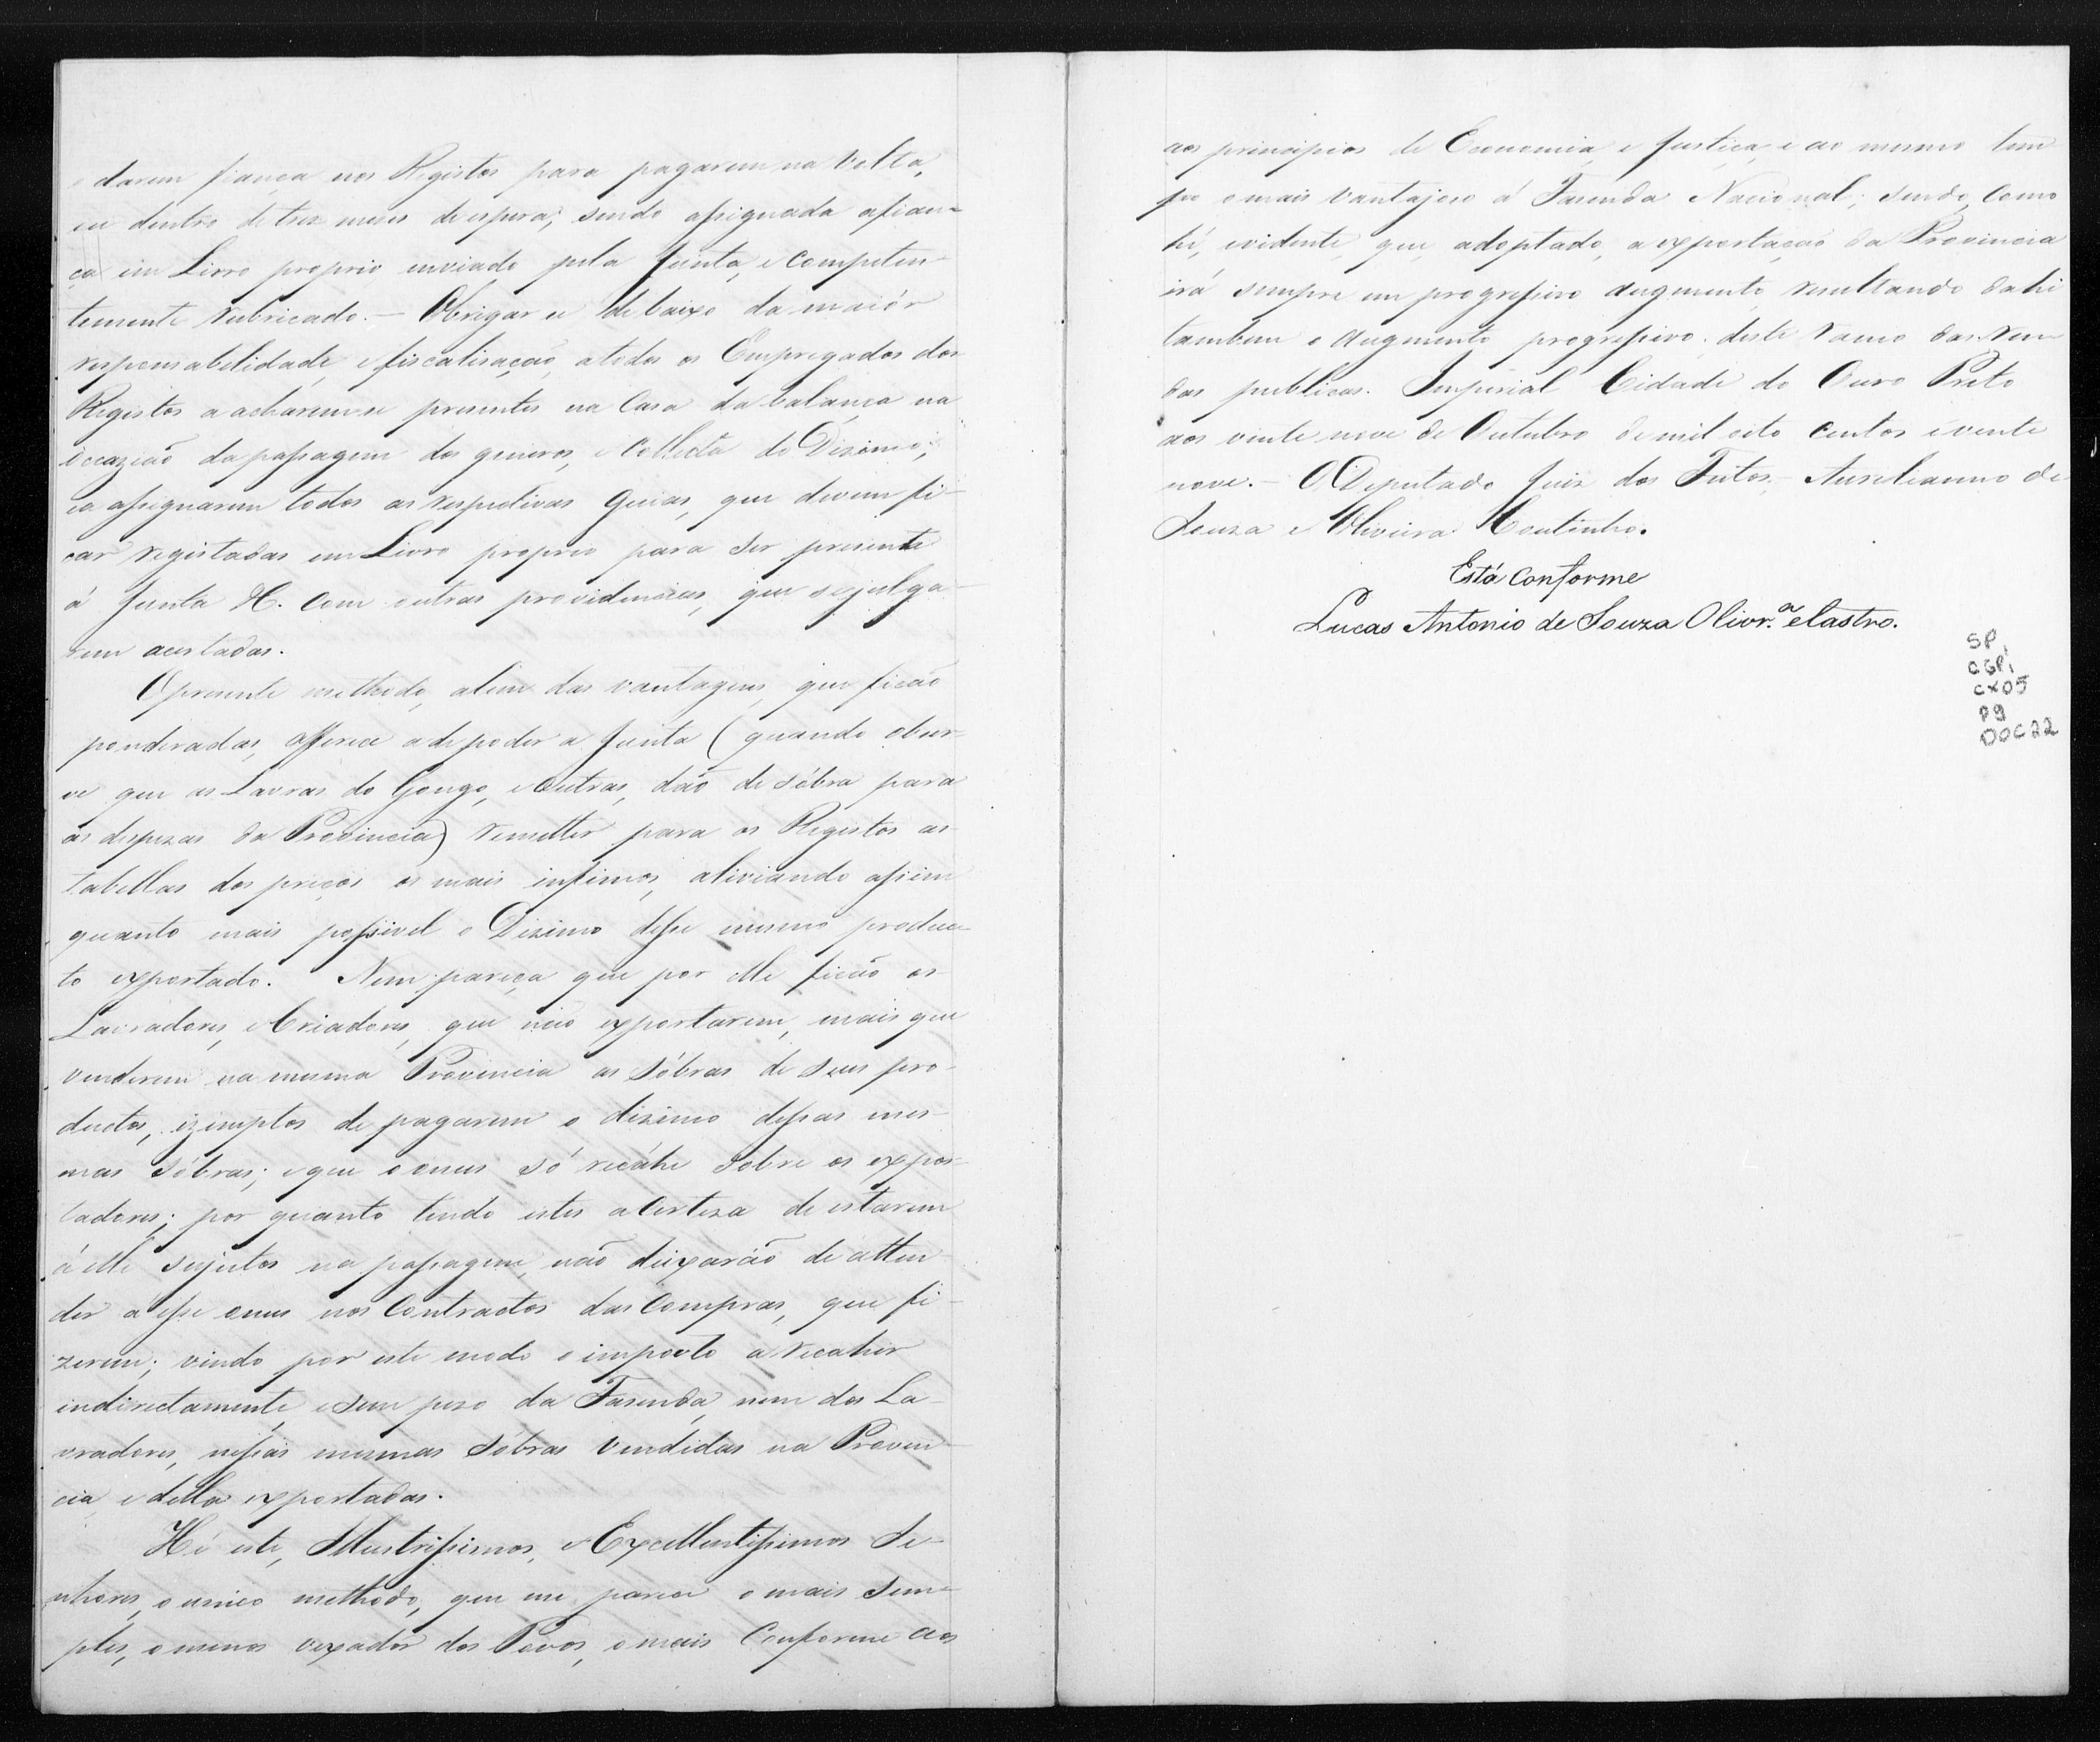 e darem fiança nos Registos para pagarem na volta,
ou dentro de tres meses de espera; sendo assignada a fian=
ça em Livro proprio enviado pela Junta, e competen-
temente rubricado. — Obrigar se debaixo da maiór
responsabilidade, e fiscalisação, a todos os Empregados dos
Registos a acharem se presentes na Casa da balança na
occazião da passagem dos generos, e Collecta do Dizimo;
e a assignarem todos as respectivas Guias, que devem fi-
car registadas em Livro proprio para ser presente
á Junta &. com outras providencias, que se julga-
rem acertadas.
O presente methodo, alem das vantagens, que ficão
ponderadas, offerece a de poder a Junta (quando obser-
ve que as Lavras do Gongo, e outras, dão de sóbra para
as despezas da Provincia) remetter para os Registos as
tabellas dos preços os mais infimos, aliviando assim
quanto mais possivel o Dizimo desse mesmo produc-
to exportado. Nem pareça que por elle ficão os
Lavradores, e Criadores, que não exportarem, mais que
venderem na mesma Provincia as sóbras de seus pro-
ductos, izemptos de pagarem o dizimo dessas mes-
mas sóbras; e que o onus só recáhe sobre os expor=
tadores; por quanto tendo estes a certeza de estarem
á elle sujeitos na passagem, não deixarão de atten-
der a esse onus nos Contractos das Compras, que fi-
zerem; vindo por este modo o imposto a recahir
indirectamente, e sem pezo da Fasenda, nem dos La-
vradores, nessas mesmas sóbras vendidas na Provin-
cia, e della exportadas.
Hé este, Illustrissimos, e Excellentissimos Se-
nhores, o unico methodo, que me parece o mais sim-
ples, o menos vexadór dos Povos, o mais Conforme aos
aos principios de Economia, e Justiça, e ao mesmo tem
po o mais vantajoso á Fasenda Nacional; sendo, como
hé, evidente, que, adoptado, a exportação da Provincia
irá sempre em progressivo augmento, resultando dahi
tambem o augmento progressivo deste ramo das Ren
das publicas. Imperial Cidade do Ouro Preto
aos vinte nove de Outubro de mil oito centos e vinte
nove. — O Deputado Juiz dos Feitos — Aureliano de
Souza e Oliveira Coutinho.
Está Conforme
Lucas Antonio de Souza Olivr.ª e Castro.
SP,
CGP,
CX05
P9
DOC22